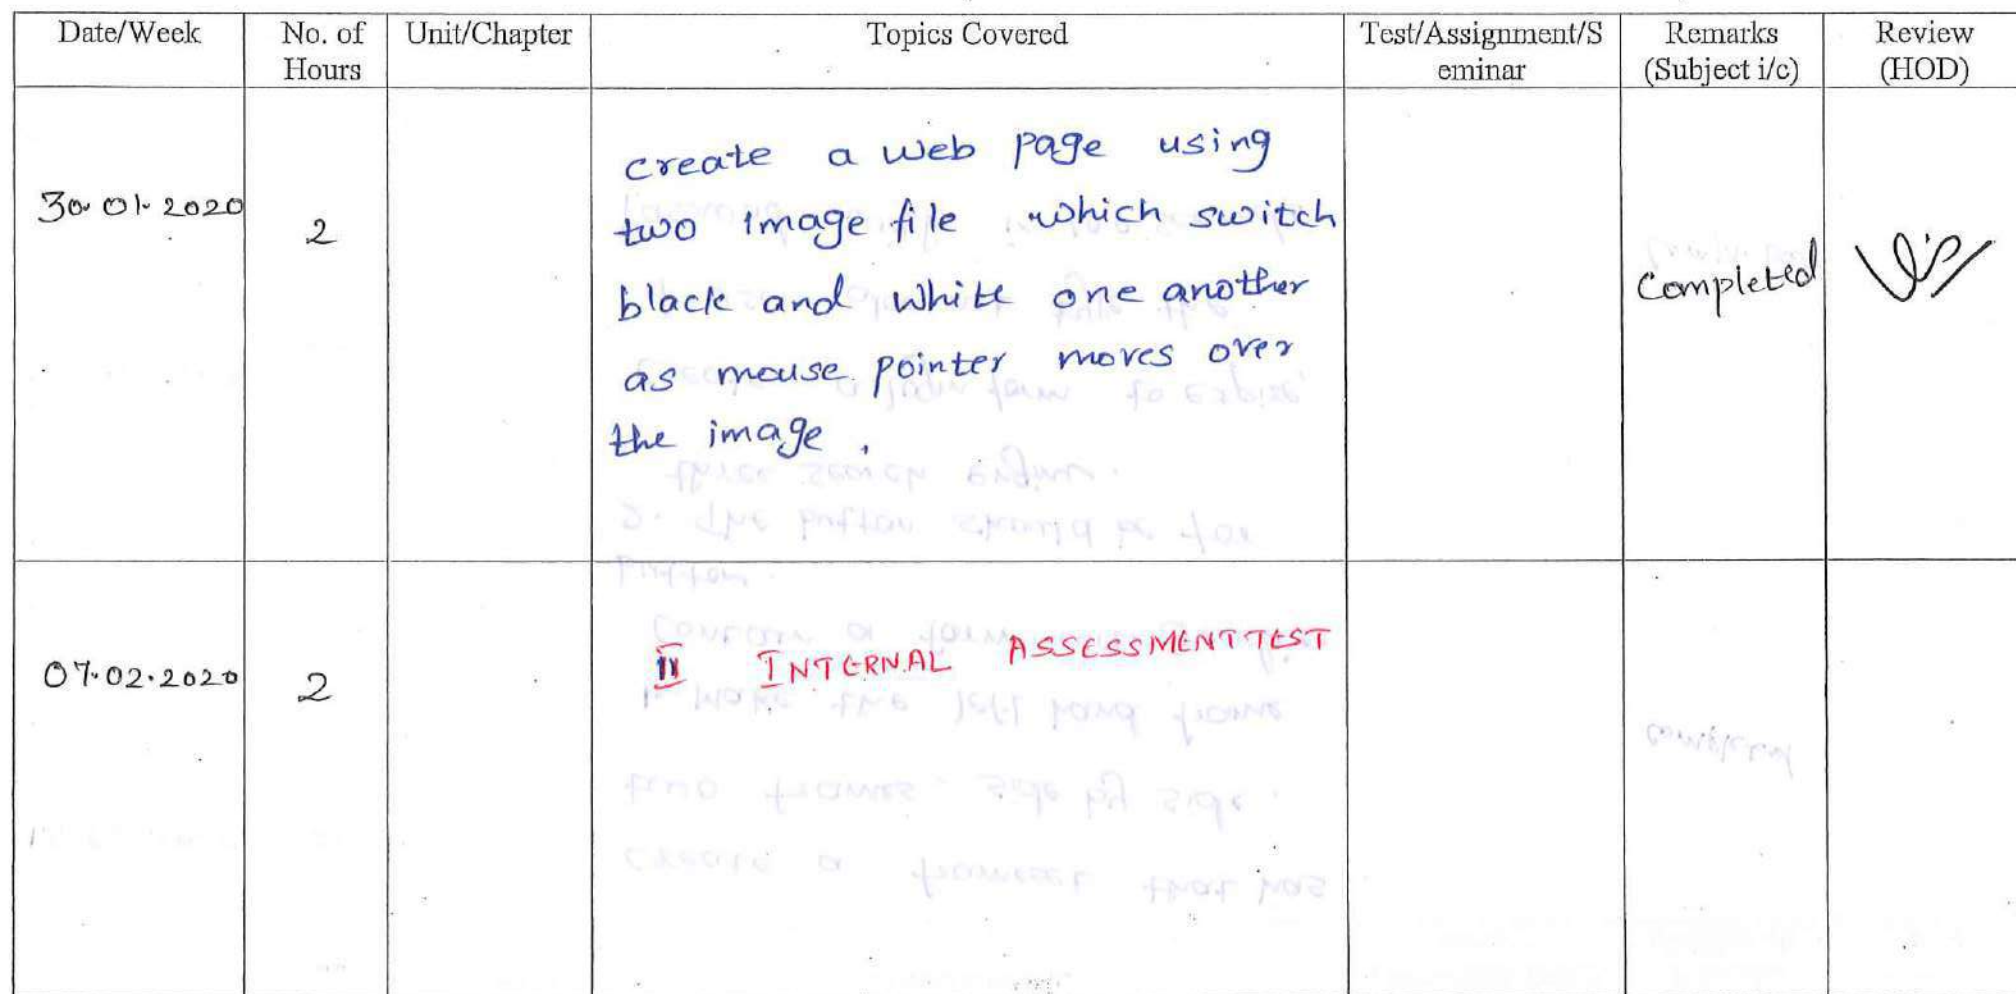 Date/Week No. of Hours Unit/Chapter Topics Covered Test/Assignment/Seminar Remarks (Subject i/c) Review (HOD)
create a web page using
30.01.2020 2 two image file which switch
black and white one another Completed
as mouse pointer moves over
the image.
07.02.2020 2 II INTERNAL ASSESSMENT TEST